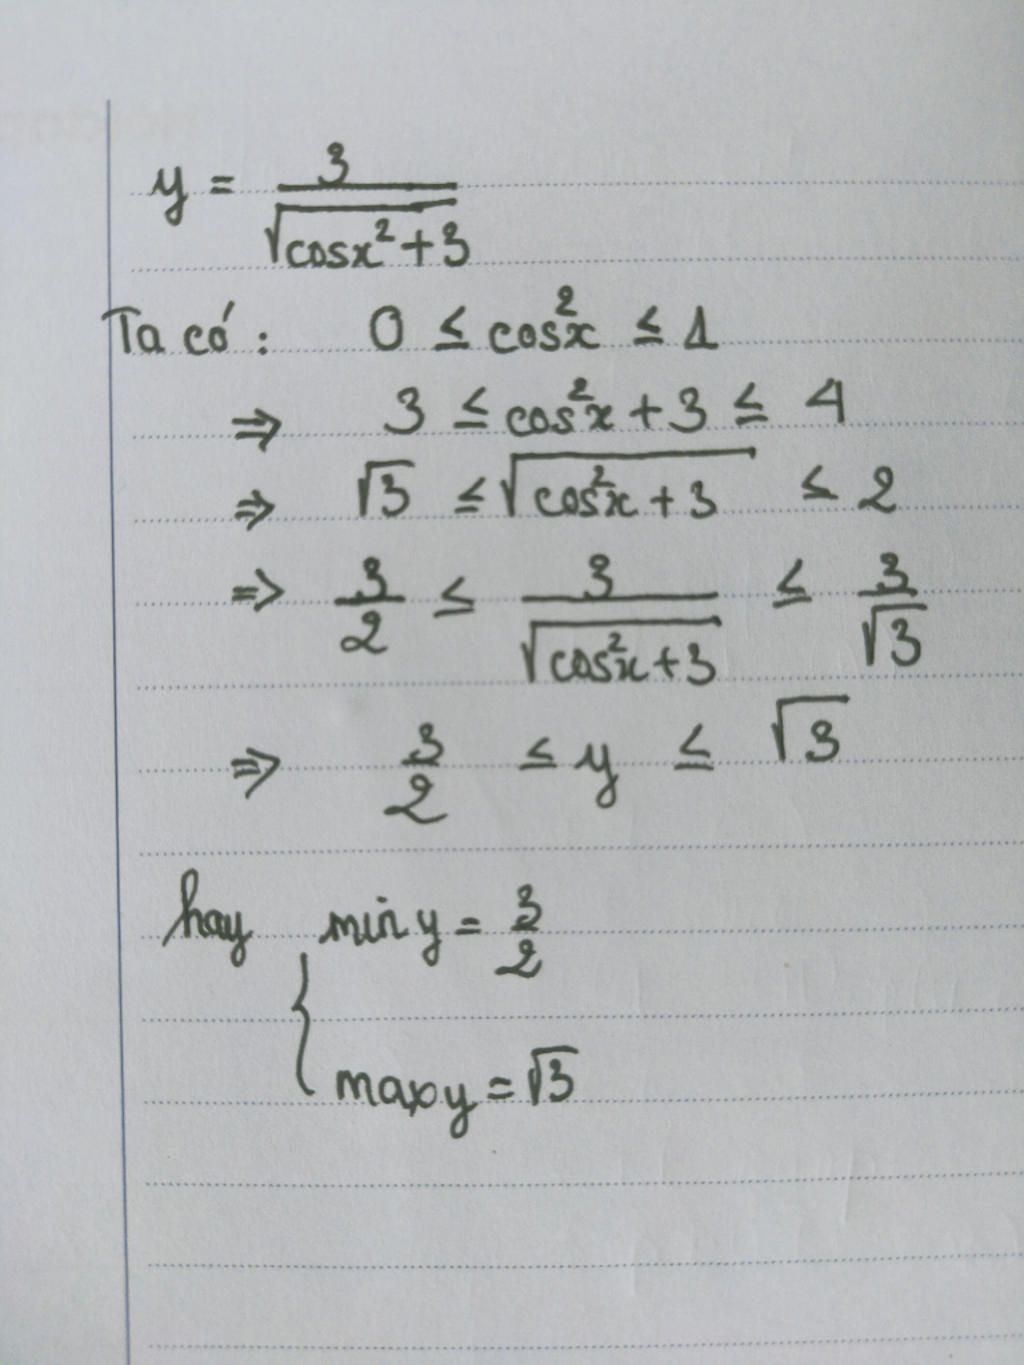 y = 3/√(cosx² + 3)
Ta có : 0 ≤ cos²x ≤ 1
⇒ 3 ≤ cos²x + 3 ≤ 4
⇒ √3 ≤ √(cos²x + 3) ≤ 2
⇒ 3/2 ≤ 3/√(cos²x + 3) ≤ 3/√3
⇒ 3/2 ≤ y ≤ √3
hay { min y = 3/2
max y = √3